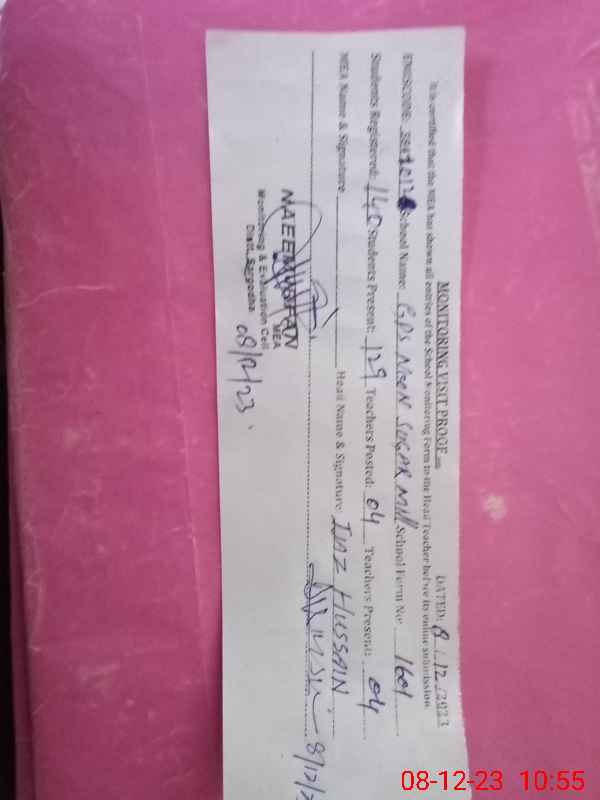 MONITORING VISIT PROOF DATED: 8/12/2023
It is certified that the MEA has shown all entries of the School Monitoring Form to the Head Teacher before its online submission.
EMISCODE: School Name: GPS NOON SUGAR Mill School Form No: 1601
Students Registered: 140 Students Present: 129 Teachers Posted: 04 Teachers Present: 04
MEA Name & Signature Head Name & Signature: IJAZ HUSSAIN
8/12/2
MEA
Monitoring & Evaluation Cell
Distt. Sargodha.
08/12/23
08-12-23 10:55